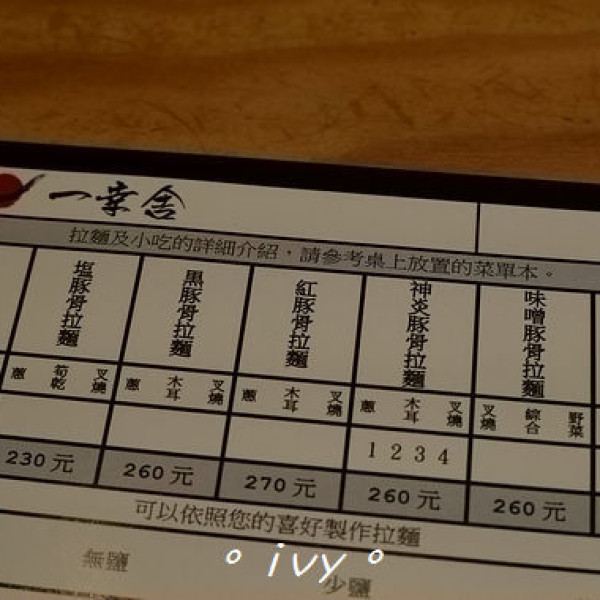 一幸舍
拉麵及小吃的詳細介紹，請參考桌上放置的菜單本。
塩豚骨拉麵
黑豚骨拉麵
紅豚骨拉麵
神炎豚骨拉麵
味噌豚骨拉麵
蔥 筍乾 叉燒
蔥 木耳 叉燒
蔥 木耳 叉燒
蔥 木耳 叉燒
叉燒 綜合 野菜
1 2 3 4
230 元
260 元
270 元
260 元
260 元
可以依照您的喜好製作拉麵
無鹽
少鹽
° ivy °